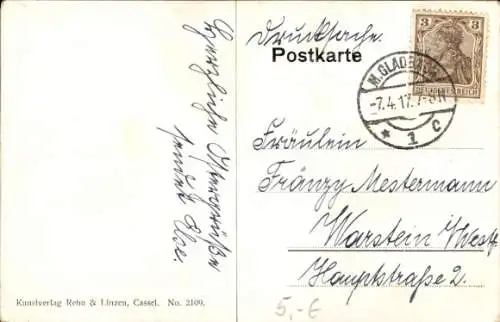 Herzliche Ostergrüße
sendet Else.
Kunstverlag Rehn & Linzen, Cassel. No. 2109.
Drucksache.
Postkarte
3
DEUTSCHES REICH
M. GLADBACH
-7.4.17. 7-8 N
* 1 c
Fräulein
Fränzy Mestermann
Warstein i/Westf.
Hauptstraße 2.
5,- €